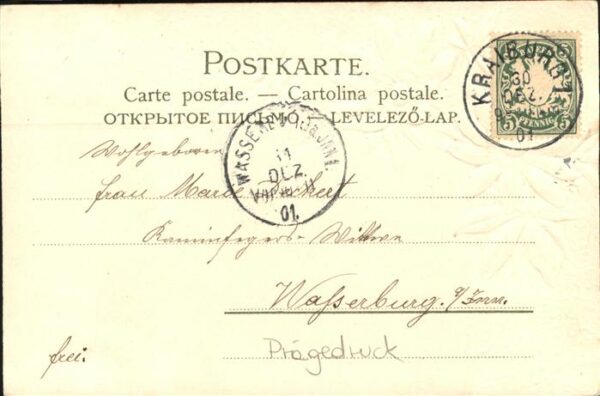 POSTKARTE.
Carte postale. — Cartolina postale.
ОТКРЫТОЕ ПИСЬМО. — LEVELEZŐ-LAP.
KRAIBURG
30
DEZ.
01
5 5
PFENNIG
WASSERB
DEZ.
01.
Wohlgeboren
Frau Marie
Kaminfegers-Wittwe
Wasserburg a/Inn.
frei.
Prägedruck